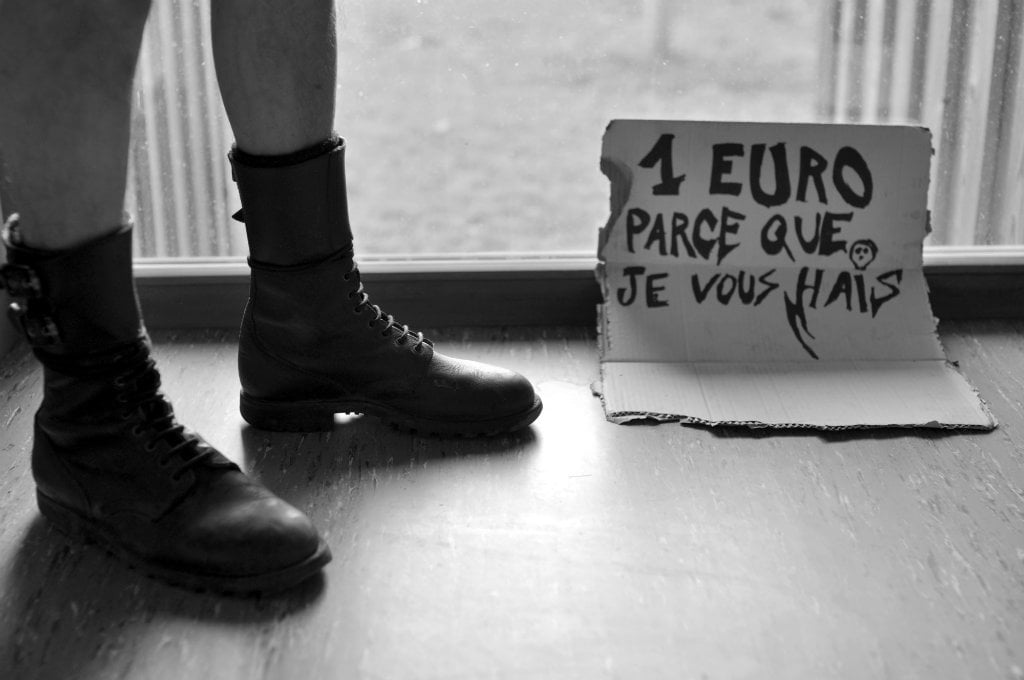 1 EURO
PARCE QUE
JE VOUS HAIS